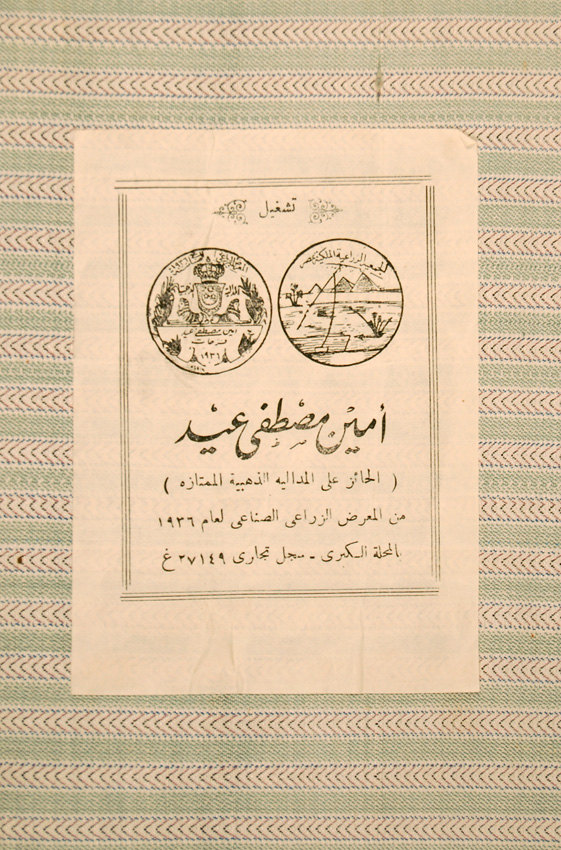 تشغيل
الجمعية الزراعية الملكية بمصر
أمين مصطفى عيد
١٩٣٦
أمين مصطفى عيد
( الحائز على المداليه الذهبية الممتازه )
من المعرض الزراعى الصناعى لعام ١٩٣٦
بالمحلة الكبرى - سجل تجارى ٢٧١٤٩ غ